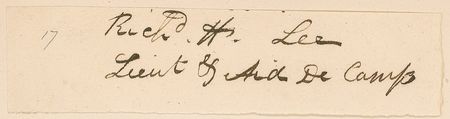 17 Richd. Hy. Lee
Lieut & Aid De Camp